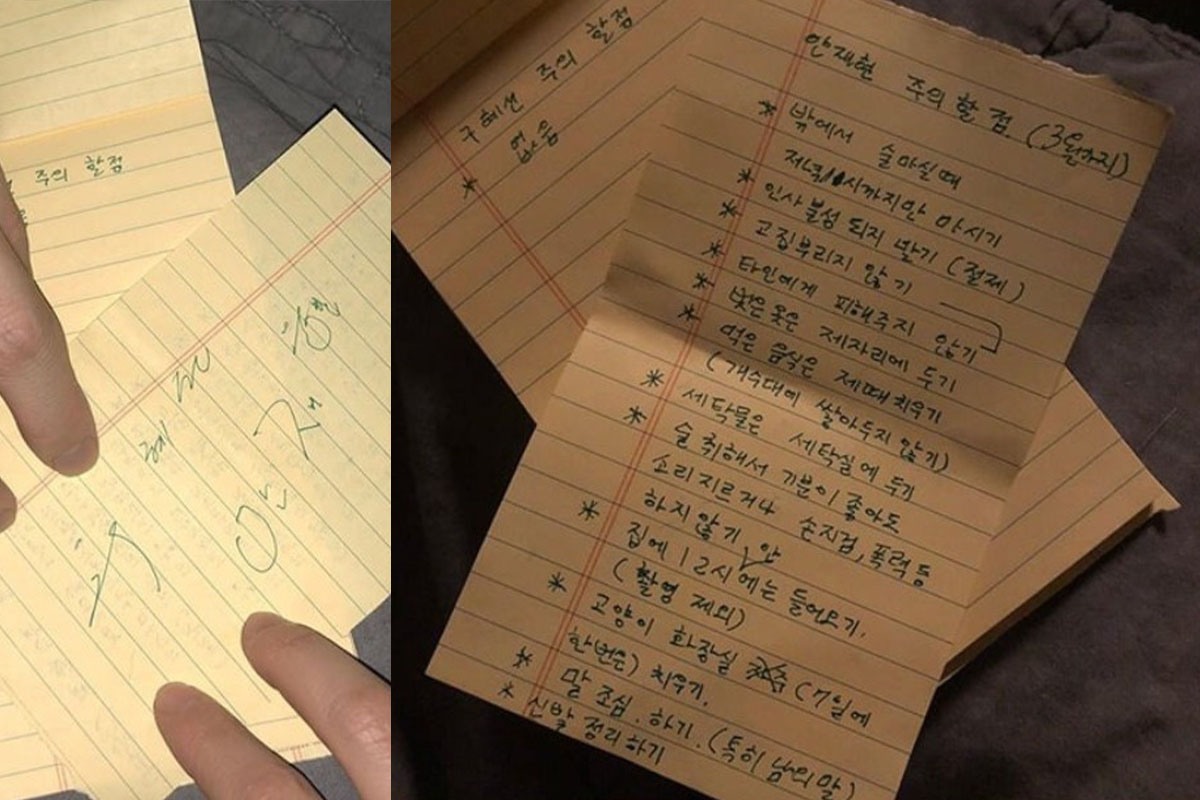 주의 할점
구혜선
안재현
구혜선 주의 할점
* 없음
안재현 주의 할점. (3월까지)
* 밖에서 술마실때
저녁 시까지만 마시기
* 인사불성 되지 말기 (절제)
* 고집부리지 않기
* 타인에게 피해주지 않기
* 벗은옷은 제자리에 두기
* 먹은 음식은 제때 치우기
(개수대에 쌓아두지 않기)
* 세탁물은 세탁실에 두기
* 술 취해서 기분이 좋아도
소리지르거나 손지검, 폭력 등
하지않기
* 집에 12시 안에는 들어오기.
(촬영 제외)
* 고양이 화장실 (7일에
한번은) 치우기.
* 말 조심. 하기. (특히 남의 말)
* 신발 정리하기